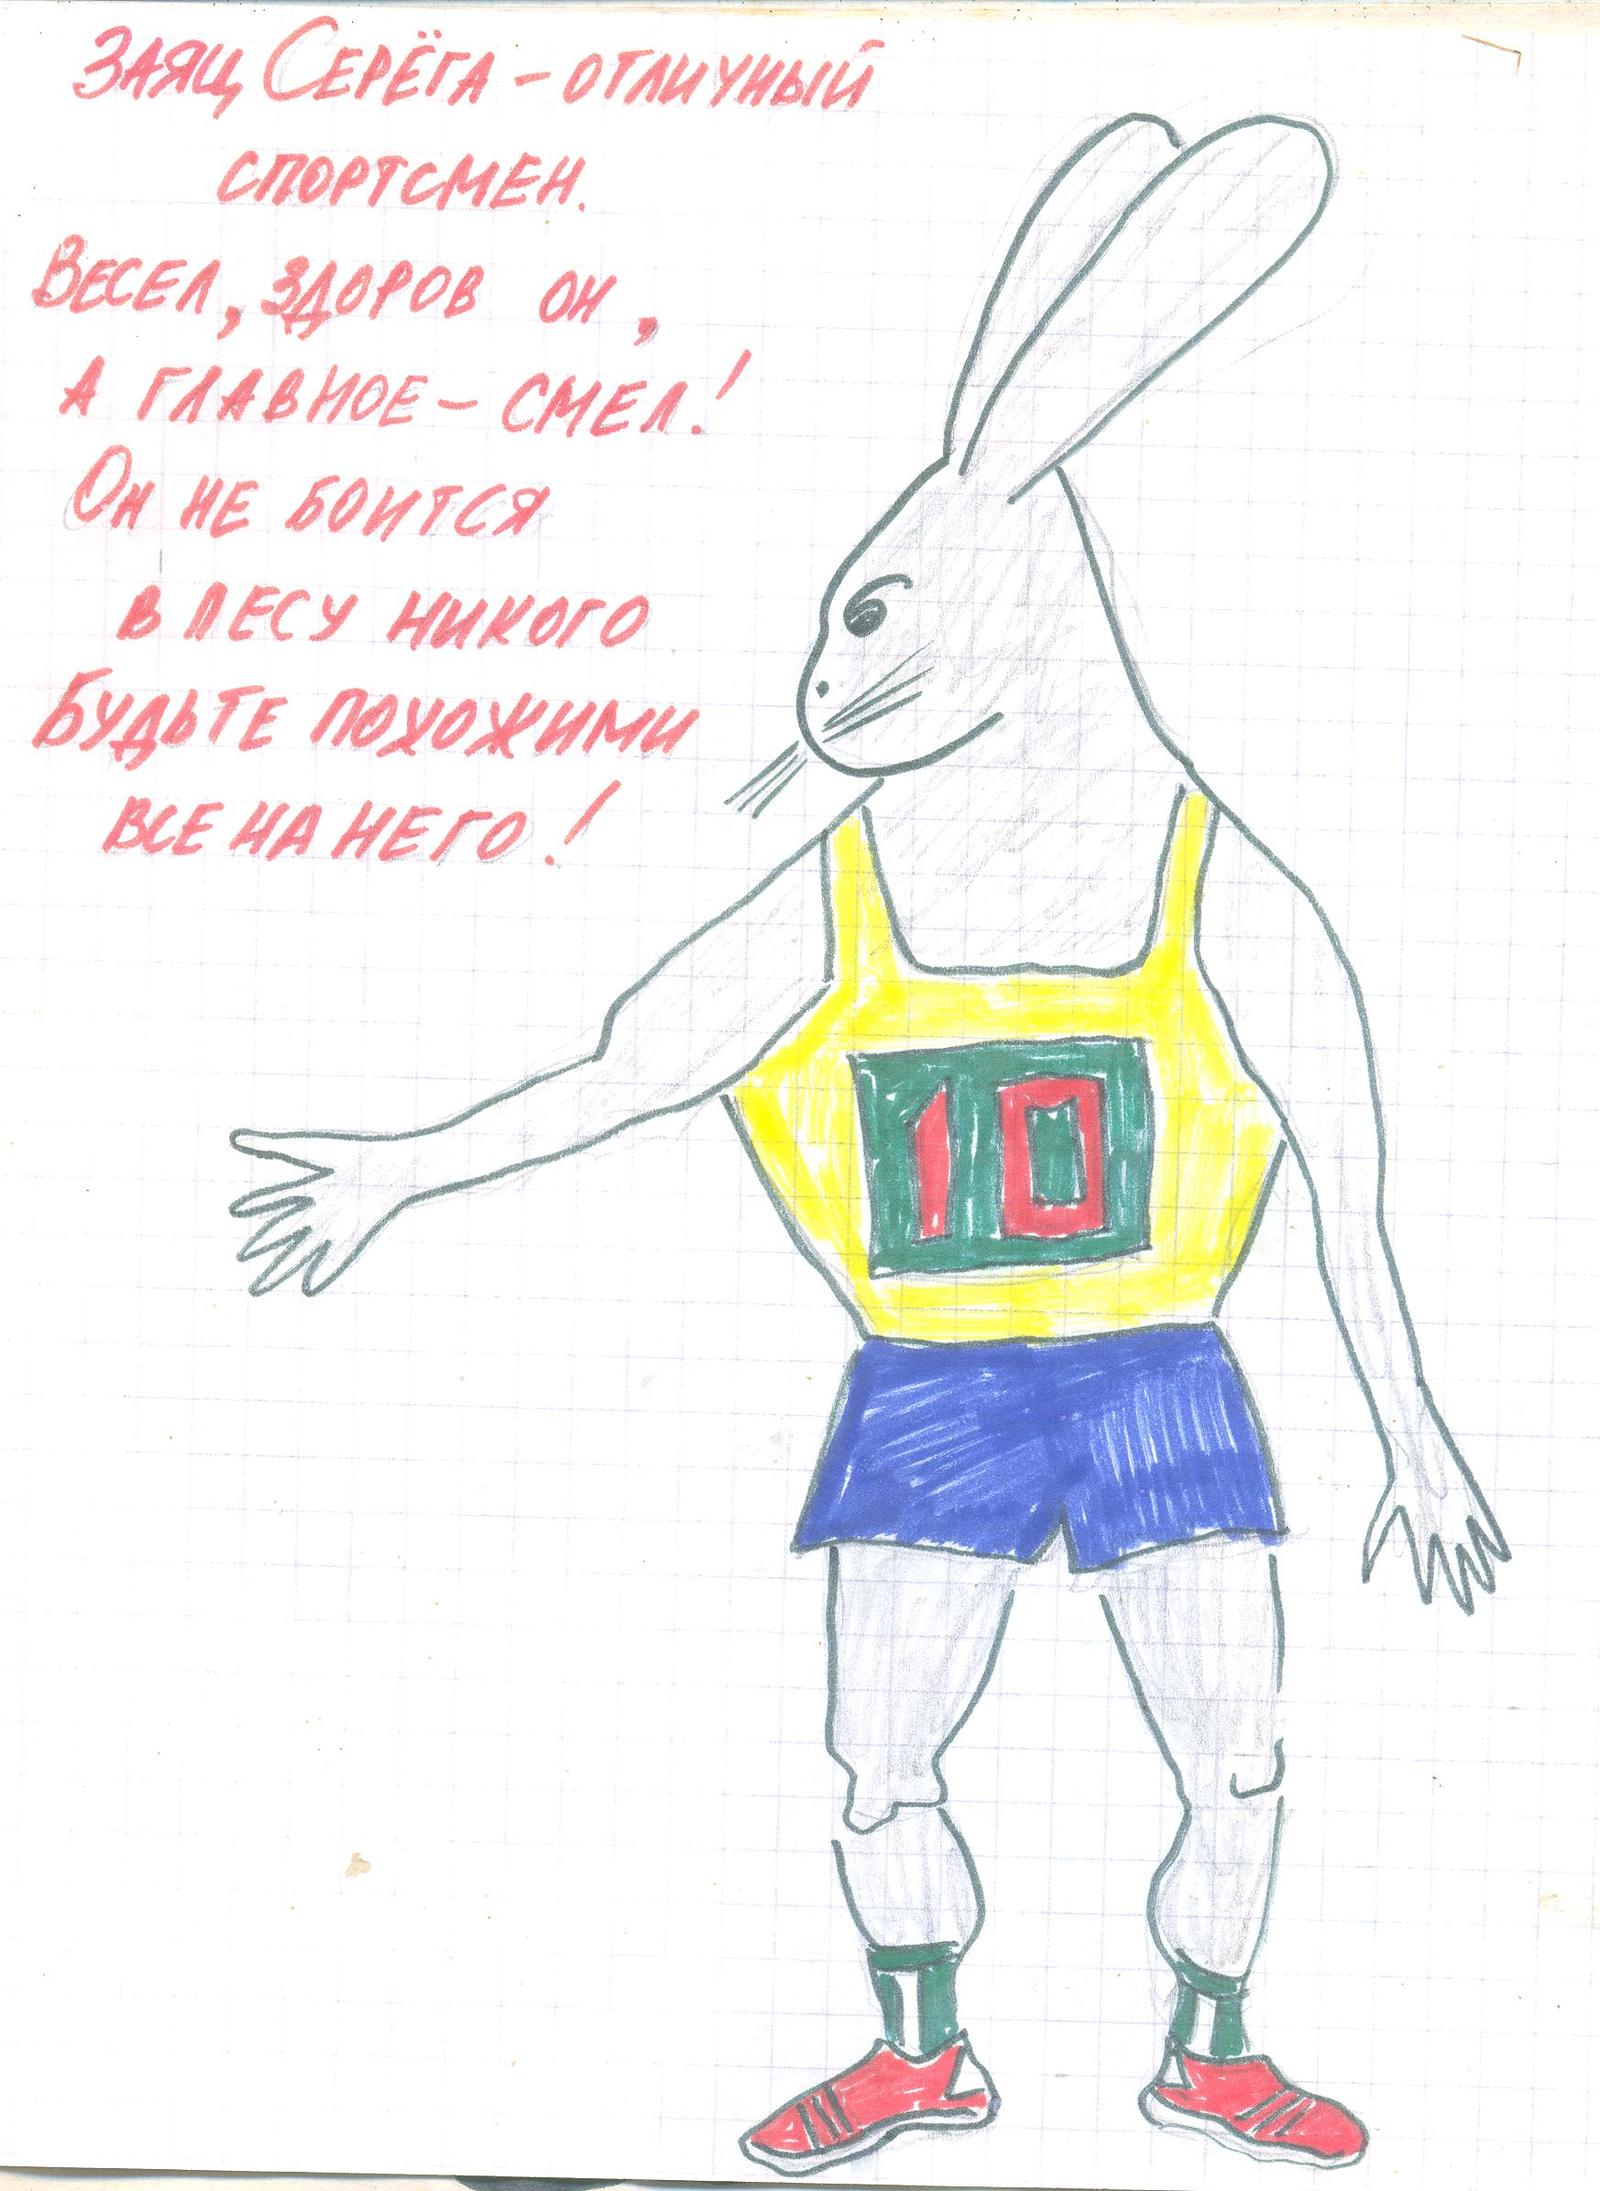 Заяц Серёга – отличный
спортсмен.
Весел, здоров он,
а главное – смел!
Он не боится
в лесу никого
Будьте похожими
все на него!
10